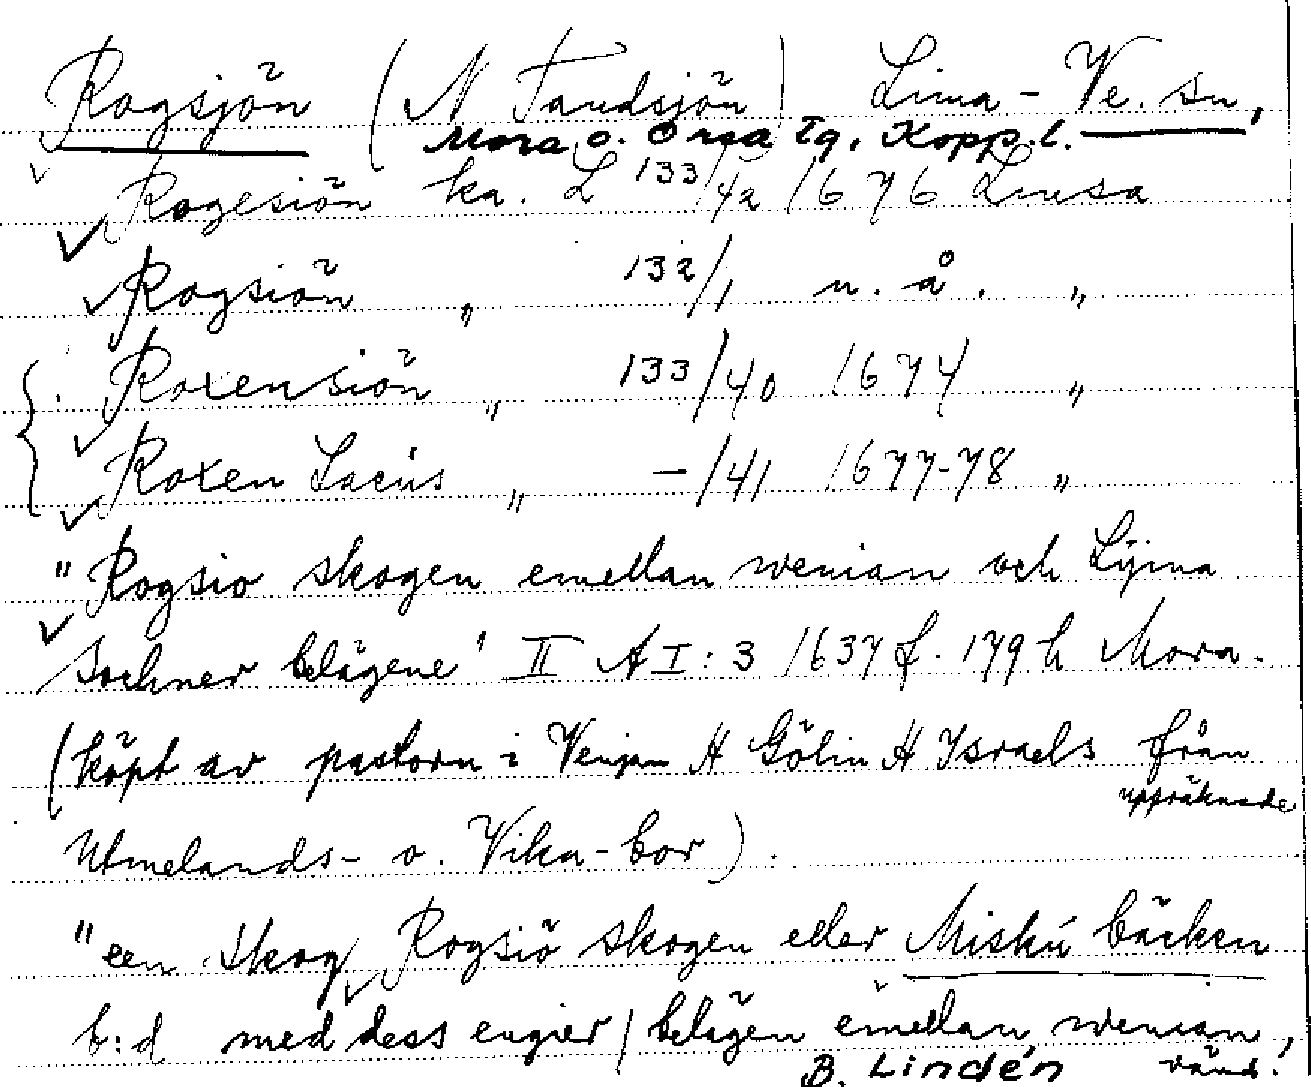 Rogsjön (N Tandsjön) Lima - Ve. sn,
Mora o. Orsa tg, Kopp. l.
Rogesiön ka. L 133/42 1676 Limsa
Rogsiön " 132/1 u. å. "
Roxensiön " 133/40 1674 "
Roxen Lacus " -/41 1677-78 "
"Rogsio skogen emellan wenian och Lÿma
sochner belägene" II A I: 3 1637 f. 179 h Mora.
(köpt av pastorn i Venjan H Gölin H Israels från
uppräknade
Utmelands- o. Vika-bor).
"een skog Rogsiö skogen eller Miskú bäcken
b:d med dess engier / belägen emellan wenian,
B. Lindén vänd!